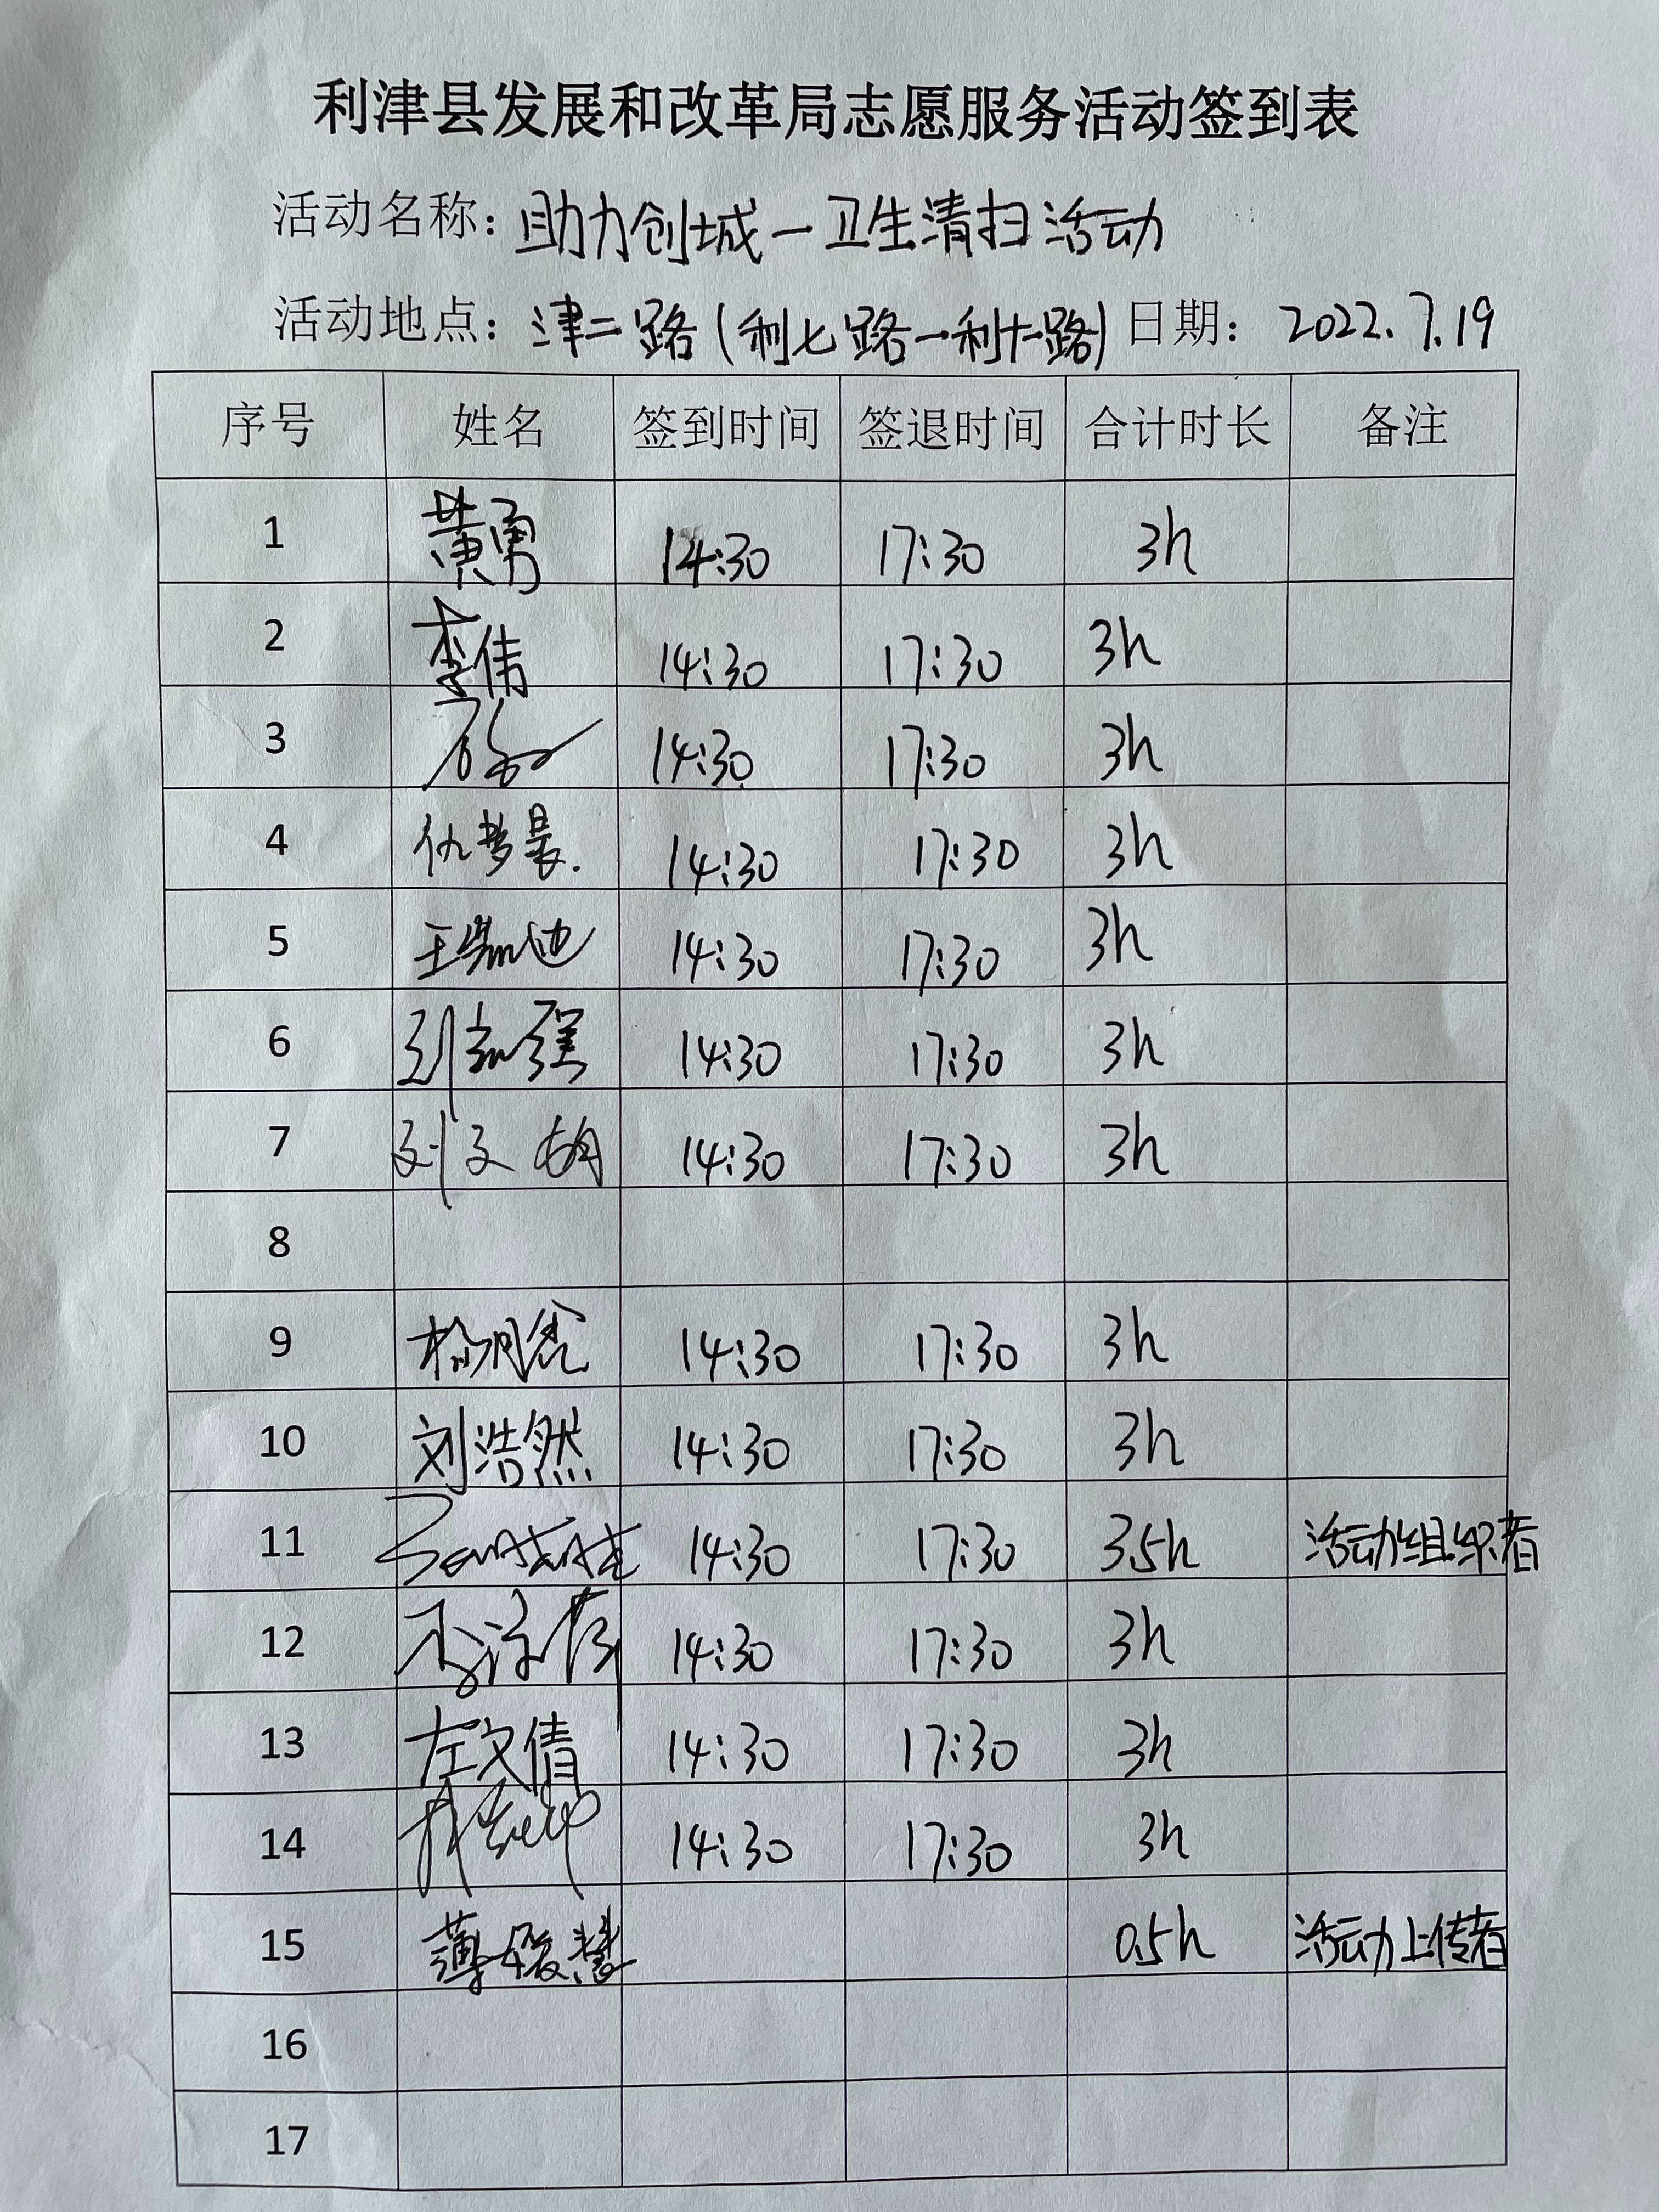 利津县发展和改革局志愿服务活动签到表
活动名称：助力创城一卫生清扫活动
活动地点：津二路(利七路一利十一路) 日期：2022.7.19
序号 姓名 签到时间 签退时间 合计时长 备注
1 黄勇 14:30 17:30 3h
2 李伟 14:30 17:30 3h
3 14:30 17:30 3h
4 仇梦晨. 14:30 17:30 3h
5 王凯迪 14:30 17:30 3h
6 刘志强 14:30 17:30 3h
7 刘文 14:30 17:30 3h
8
9 14:30 17:30 3h
10 刘浩然 14:30 17:30 3h
11 14:30 17:30 3.5h 活动组织者
12 14:30 17:30 3h
13 左文倩 14:30 17:30 3h
14 14:30 17:30 3h
15 薄媛慧 0.5h 活动上传者
16
17